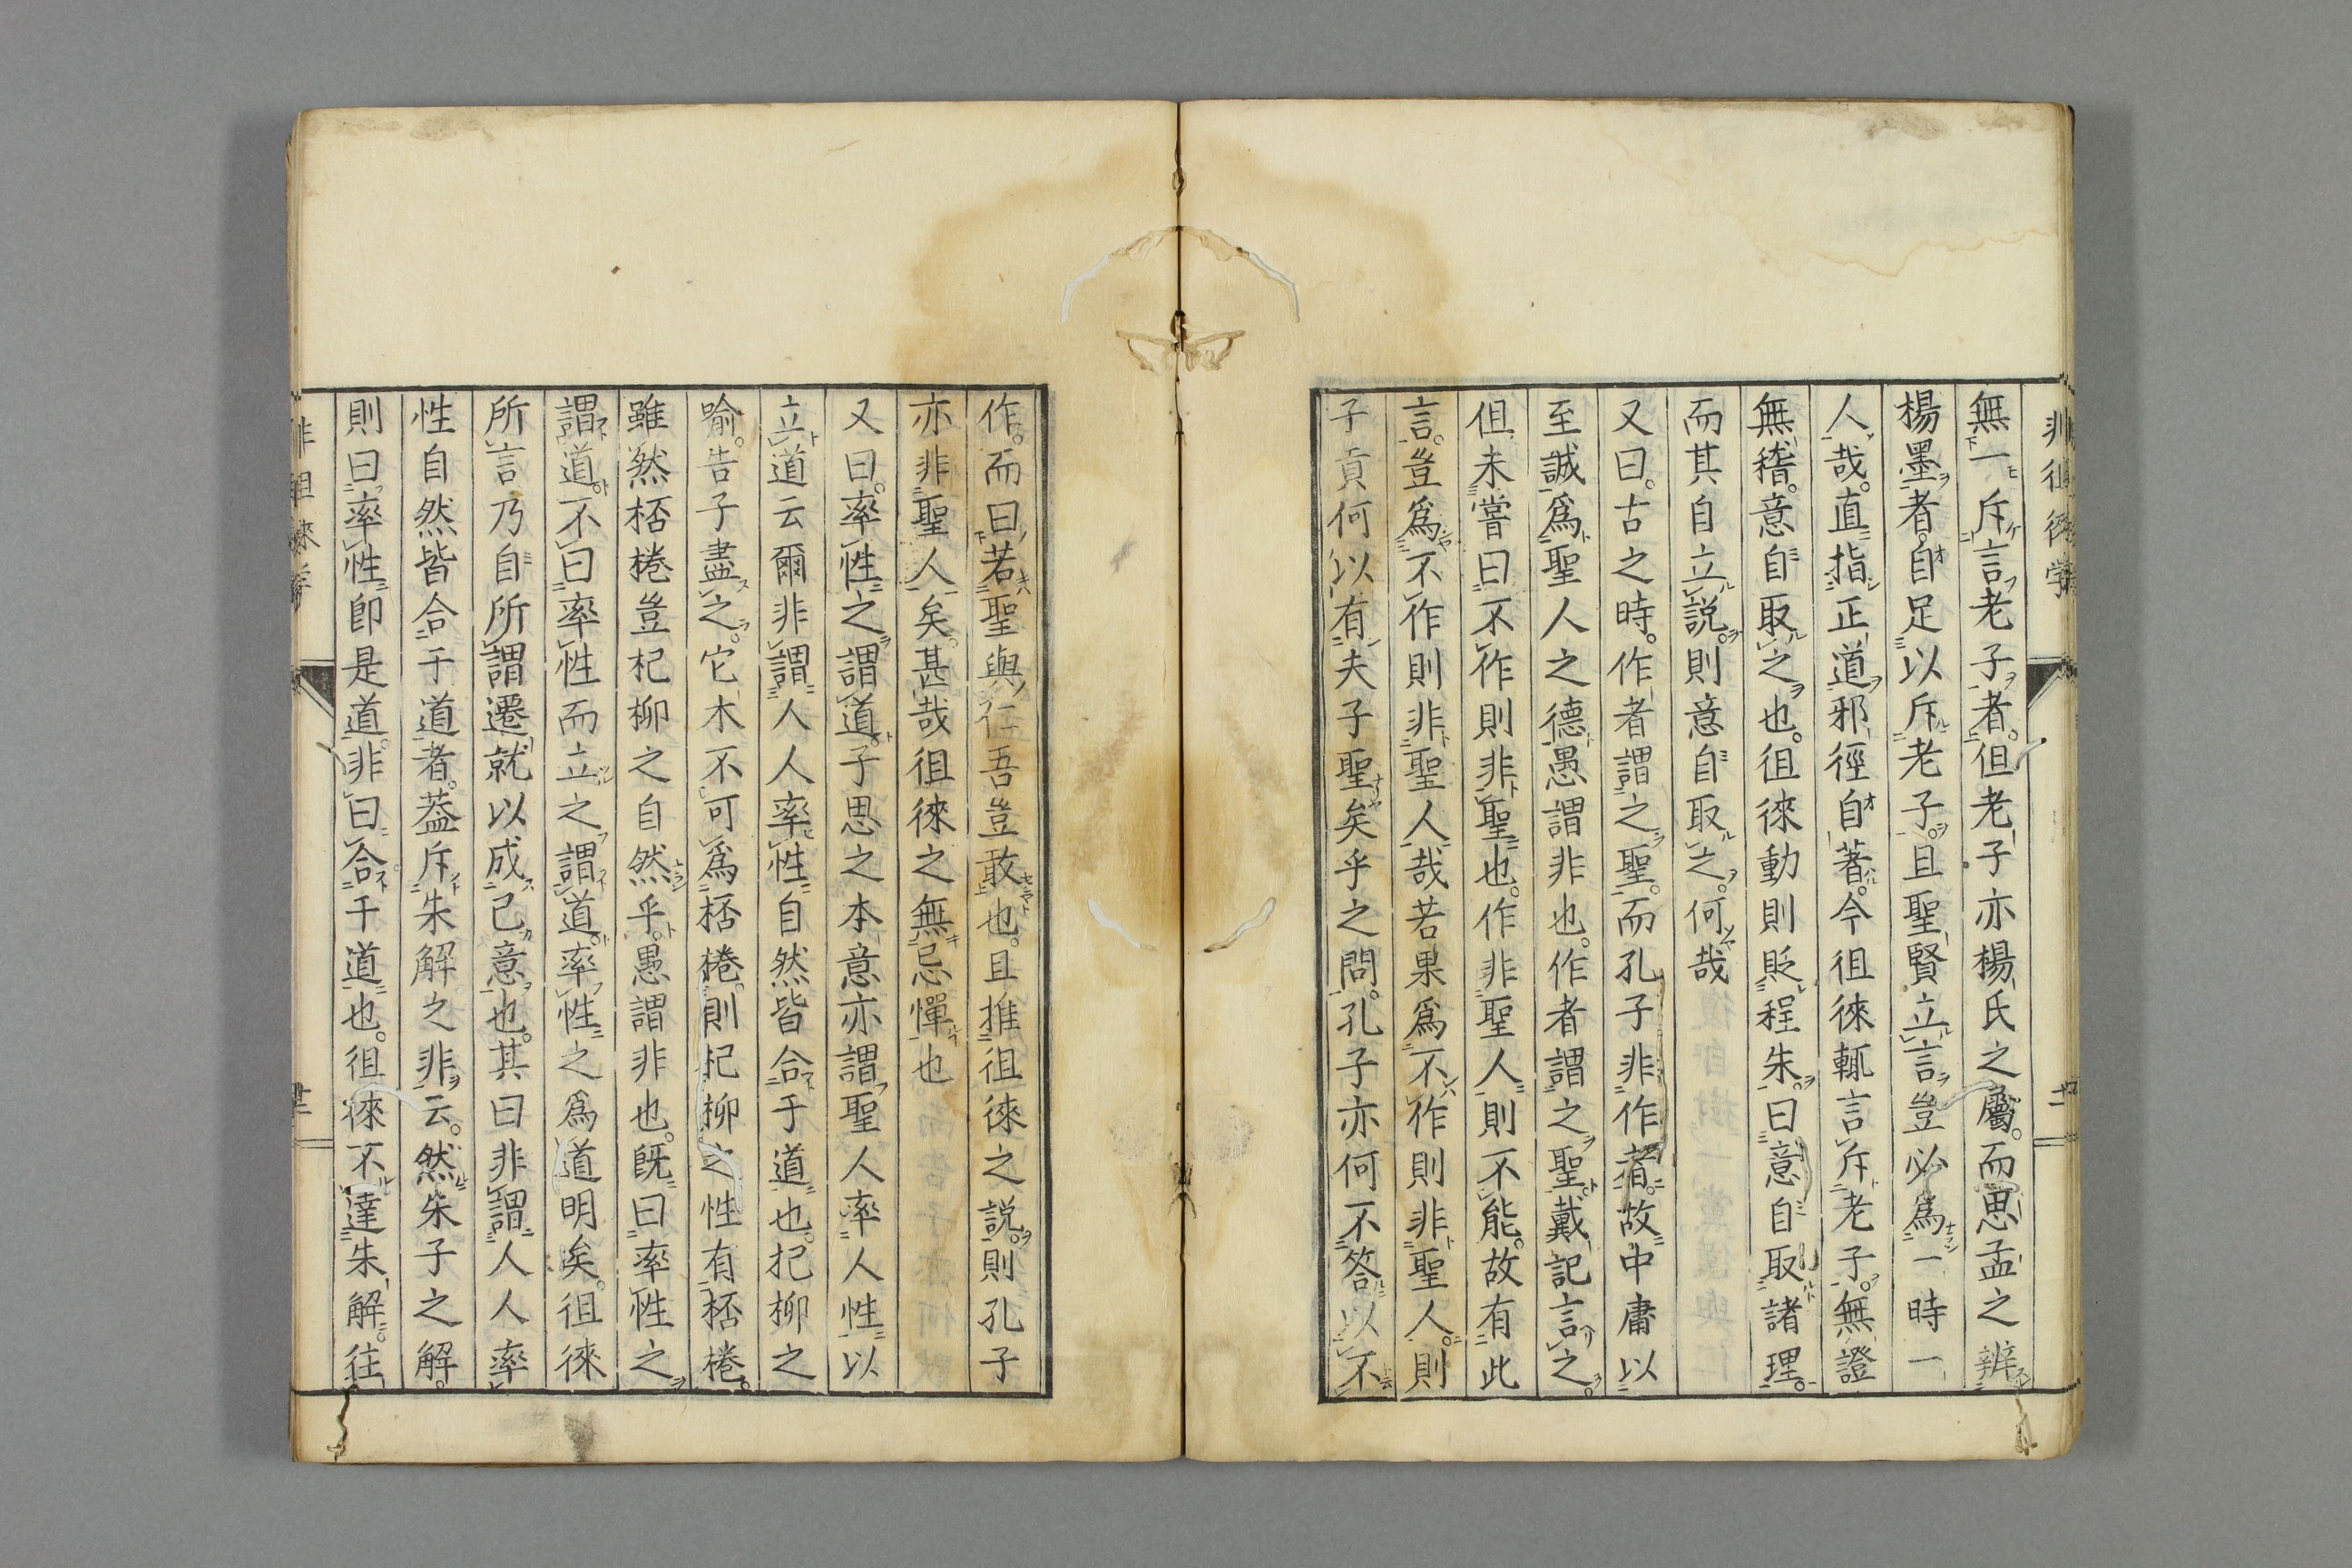 非徂徠學
無一斥言老子者。但老子亦楊氏之屬。而思孟之辨
楊墨者。自足以斥老子。且聖賢立言豈必爲一時一
人哉。直指正道邪徑自著。今徂徠輒言斥老子。無證
無稽。意自取之也。徂徠動則貶程朱。曰意自取諸理。
而其自立說。則意自取之。何哉
又曰。古之時。作者謂之聖。而孔子非作者。故中庸以
至誠爲聖人之德愚謂非也。作者謂之聖戴記言之。
但未嘗曰不作則非聖也。作非聖人則不能。故有此
言。豈爲不作則非聖人哉若果爲不作則非聖人。則
子貢何以有夫子聖矣乎之問。孔子亦何不答以不
作。而曰若聖與仁吾豈敢也。且推徂徠之說。則孔子
亦非聖人矣。甚哉徂徠之無忌憚也
又曰。率性之謂道。子思之本意亦謂聖人率人性以
立道云爾非謂人人率性自然皆合于道也。杞柳之
喻。告子盡之。它木不可爲桮棬。則杞柳之性有桮棬。
雖然桮棬豈杞柳之自然乎。愚謂非也。既曰率性之
謂道。不曰率性而立之謂道。率性之爲道明矣。徂徠
所言乃自所謂遷就以成己意也。其曰非謂人人率
性自然皆合于道者。葢斥朱解之非云。然朱子之解。
則曰率性即是道。非曰合于道也。徂徠不達朱解。往
非徂徠學